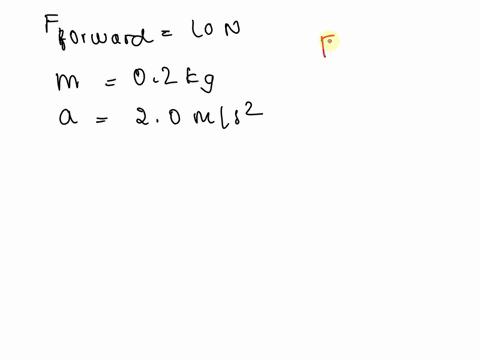 F forward = 10 N
F
m = 0.2 kg
a = 2.0 m/s²